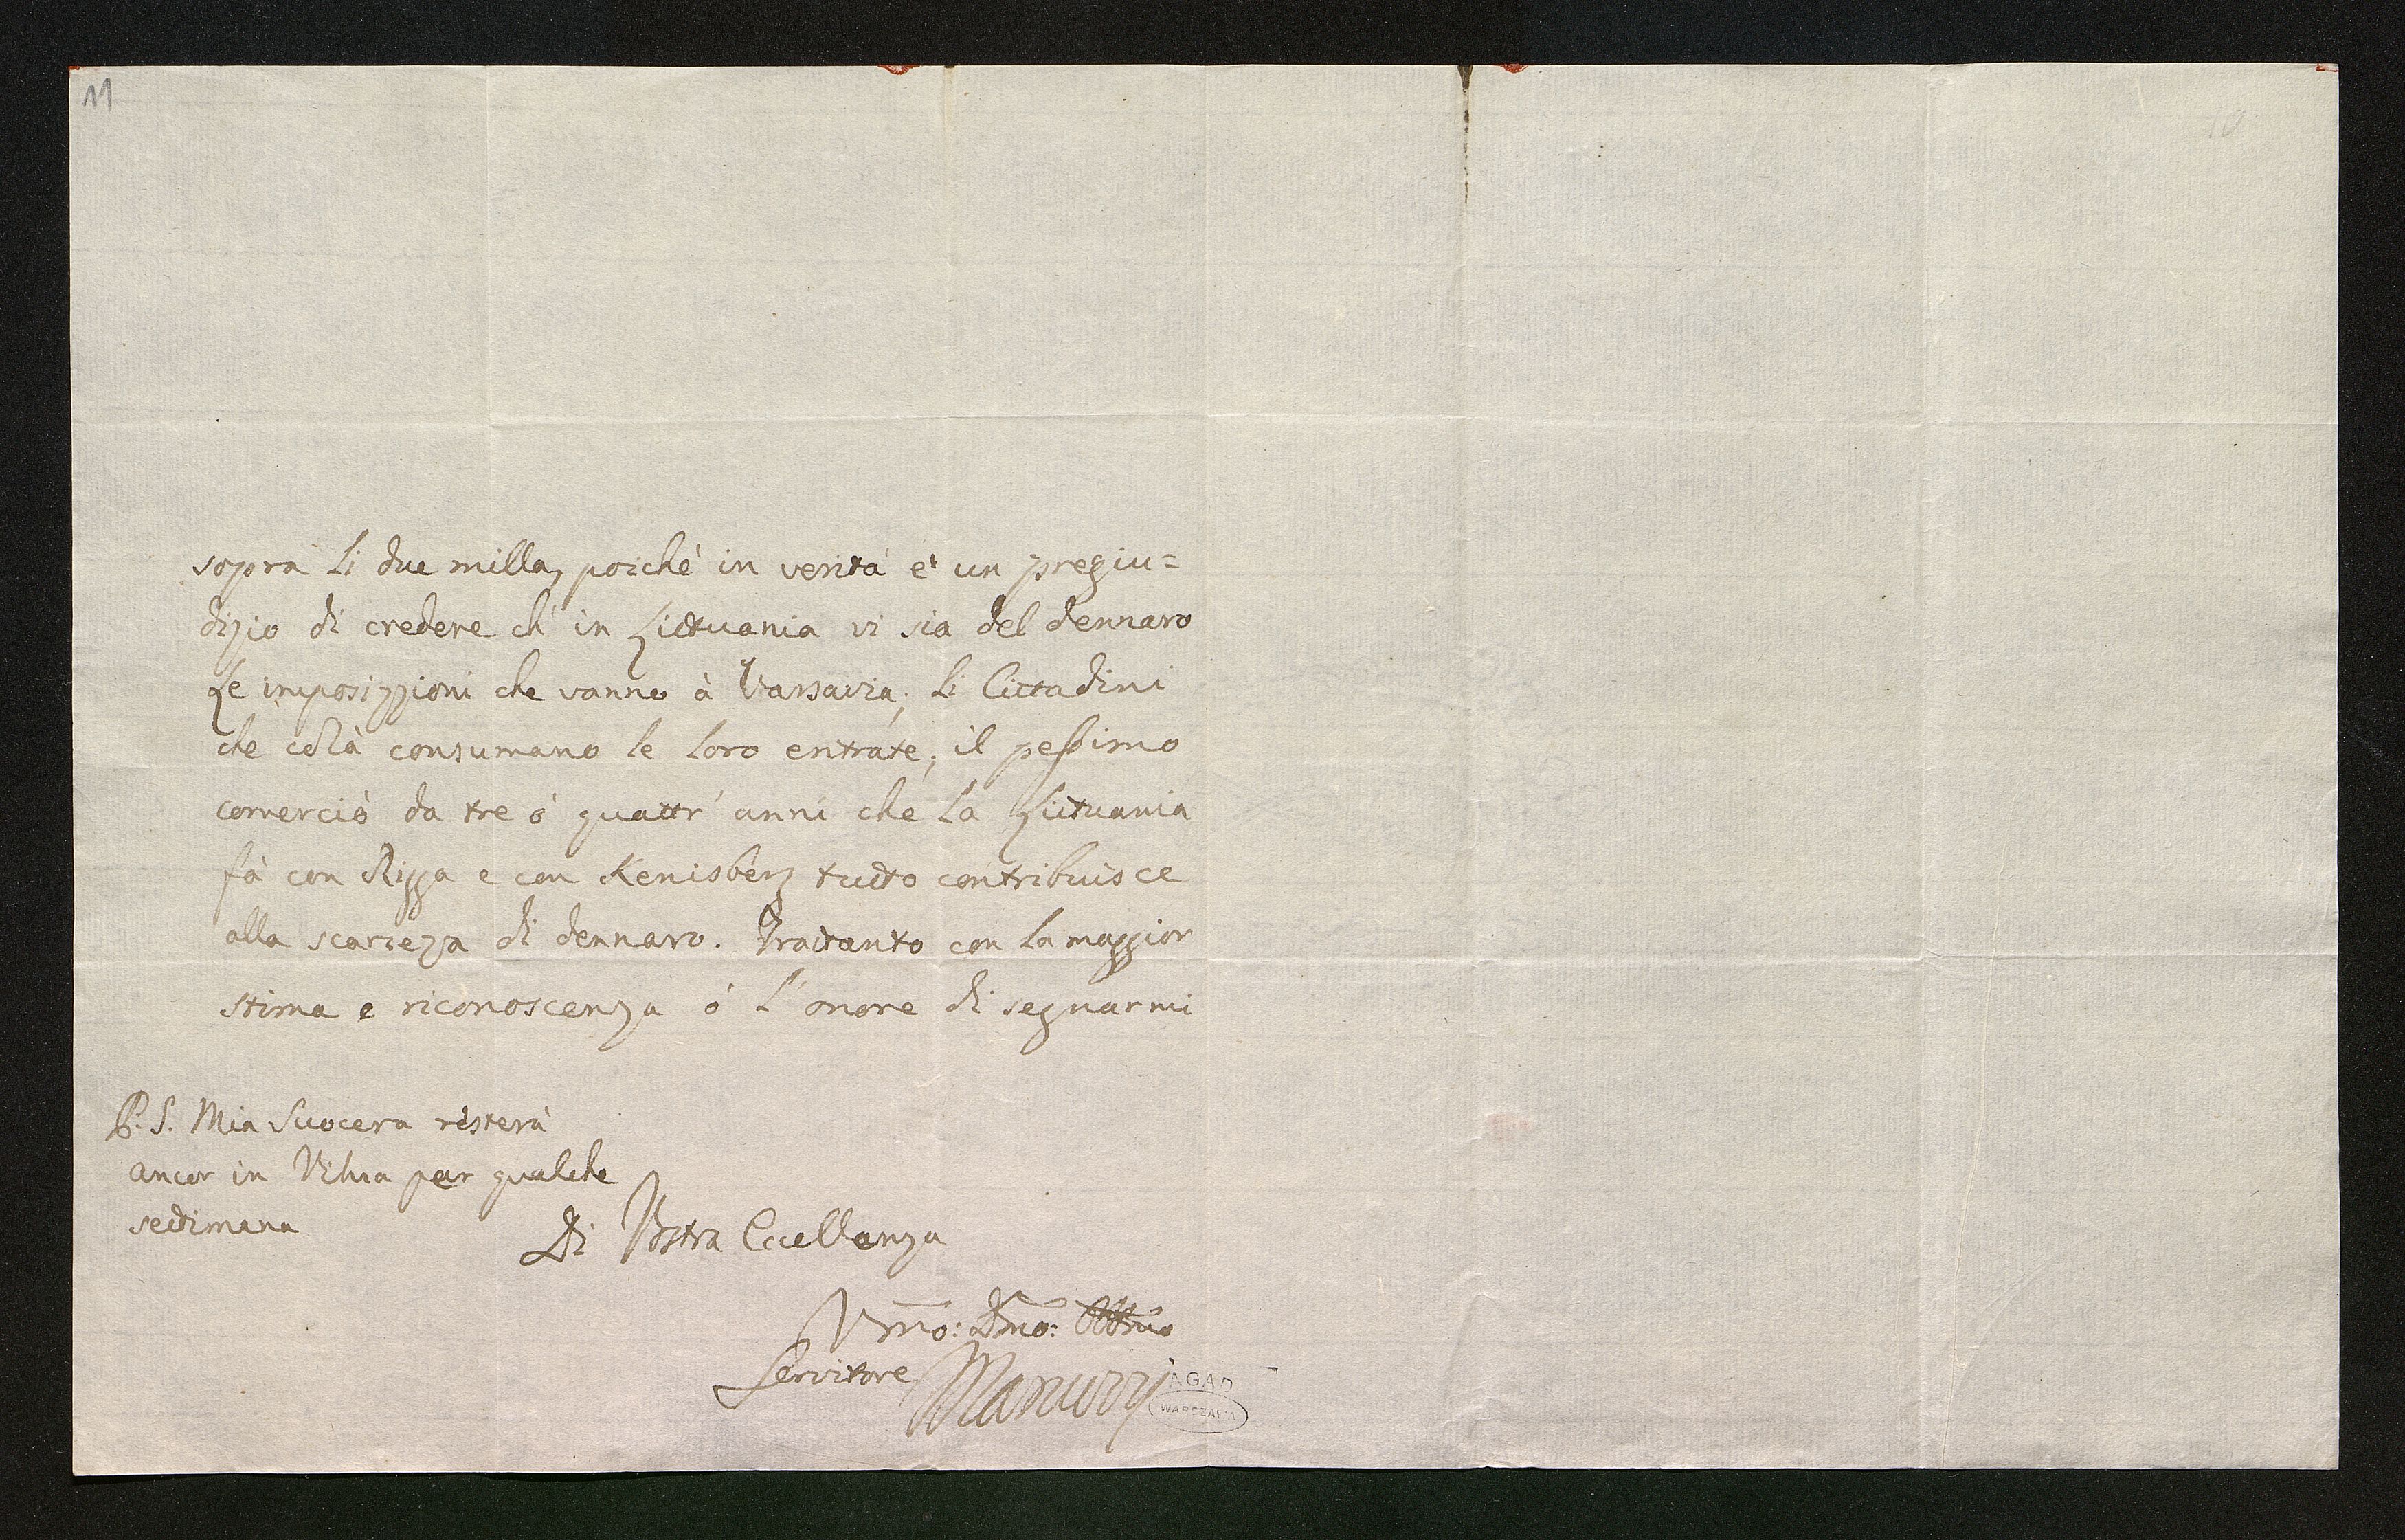 11
10
sopra li due milla, poichè in verità e' un pregiu=
dizio di credere ch' in Littuania vi sia del dennaro
Le imposizzioni che vanno à Varsavia; li Cittadini
che colà consumano le loro entrate; il pessimo
comerciò da tre ó quattr' anni che la Littuania
fà con Rigga e con Kenisberg tutto contribuisce
alla scarzezza di dennaro. Trattanto con la maggior
stima e riconoscenza ó l'onore di segnarmi
P: S. Mia Suocera resterà
ancor in Vilna per qualche
settimana
Di Vostra Eccellenza
Vmo: Dmo:
Servitore Manuzzi
AGAD
WARSZAWA